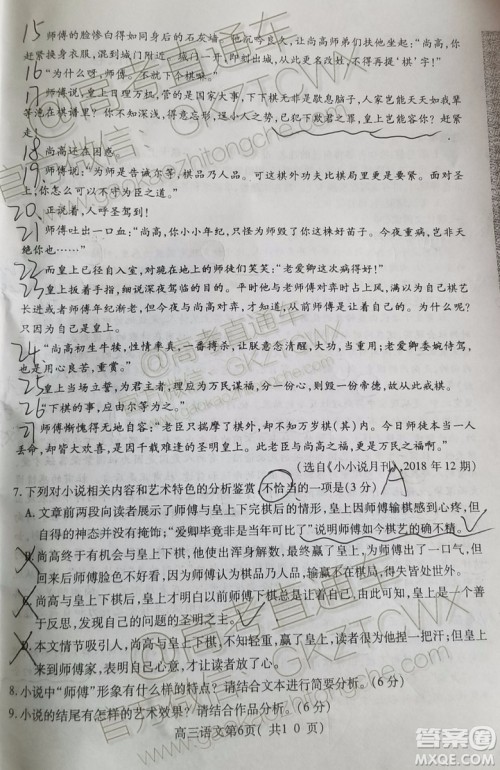 15 师傅的脸惨白得如同身后的石灰墙。他沉吟良久，让尚高师弟们扶他坐起：“尚高，你
赶紧换身衣服，混到城门附近，城门一开，即刻出城，从此更名改姓，不得再提‘棋’字！”
16 “为什么呀，师傅，不就下个棋嘛。”
17 师傅说：“皇上日理万机，管的是国家大事，下下棋无非是歇息脑子，人家岂能天天如我
等泡在棋谱里？你不知深浅，得意忘形，逞小人之势，已犯下欺君之罪，皇上岂能容你？赶紧
走！
18 尚高还在困惑。
19 师傅说：“为师是告诫尔等，棋品乃人品。可这棋外功夫比棋局里更是要紧。面对圣
上，你怎么可以不守为臣之道。”
20 正说着，人呼圣驾到！
21 师傅吐出一口血：“尚高，你小小年纪，只怪为师毁了你这棵好苗子。今夜重病，岂非天
绝你也……”
22 而皇上已径自入室，对跪在地上的师徒们笑笑：“老爱卿这次病得好！”
23 皇上扳着手指，细说深夜驾临的目的。平时他与老师傅对弈时占上风，以为自己棋艺
长进或者师傅年纪渐老，但今夜与尚高对弈，才明白，以前师傅是让着自己的。为什么呢？
只因为自己是皇上。
24 “尚高初生牛犊，性情率真，一番搏杀，让朕意念清醒，大功也。而老爱卿委婉侍驾，也
是用心良苦，重赏。”
25 皇上当场立誓，为君主者，理应为万民谋福，分一份心，则毁一份帝德，故从此戒棋。
26 下棋的事，应由尔等为之。”
27 师傅惭愧得无地自容：“老臣只求棋内功夫，却不知万岁棋(其)内。今日回天本当一人
丢命，却皆大欢喜，是因为千载难逢的圣明皇上。此皇上与尚高之福，更是万民之福啊。”
（选自《小小说月刊》，2018 年 12 期）
7. 下列对小说相关内容和艺术特色的分析鉴赏，不恰当的一项是(3 分) A
A. 文章前两段向读者展示了师傅与皇上下完棋后的情形，皇上因赢棋而感到心疼，但自
得的神态并没有掩饰；“爱卿毕竟非是当年可比了”说明师傅如今棋艺的确不精。
B. 尚高终于有机会与皇上下棋，他全力以赴、毫不懈怠，最终赢了皇上，为师傅出了一口气，但
回来后师傅脸色不好看，因为师傅认为棋品乃人品，输赢不能忘形，得失皆处世外。
C. 尚高与皇上下棋后，皇上非但没有降罪于他，反而重赏了师徒二人，因为皇上是一个善
于反思、发现自己的问题的圣明之主。
D. 本文情节吸引人，尚高与皇上下棋，不知轻重，赢了皇上，让读者很为他捏一把汗；而皇上
来到师傅家，表明与尚高下棋后的收获和立誓戒棋，又让读者深感意外。
8. 小说中“师傅”形象有什么样的特点？请结合文本进行简要分析。(6 分)
9. 小说的结尾有怎样的艺术效果？请结合作品分析。(6 分)
高三语文第6页( 共1 0 页)
@高考直通车
官方微信：GKZTCWX
www.gaokaozhitongche.com
答案圈
MXQE.COM